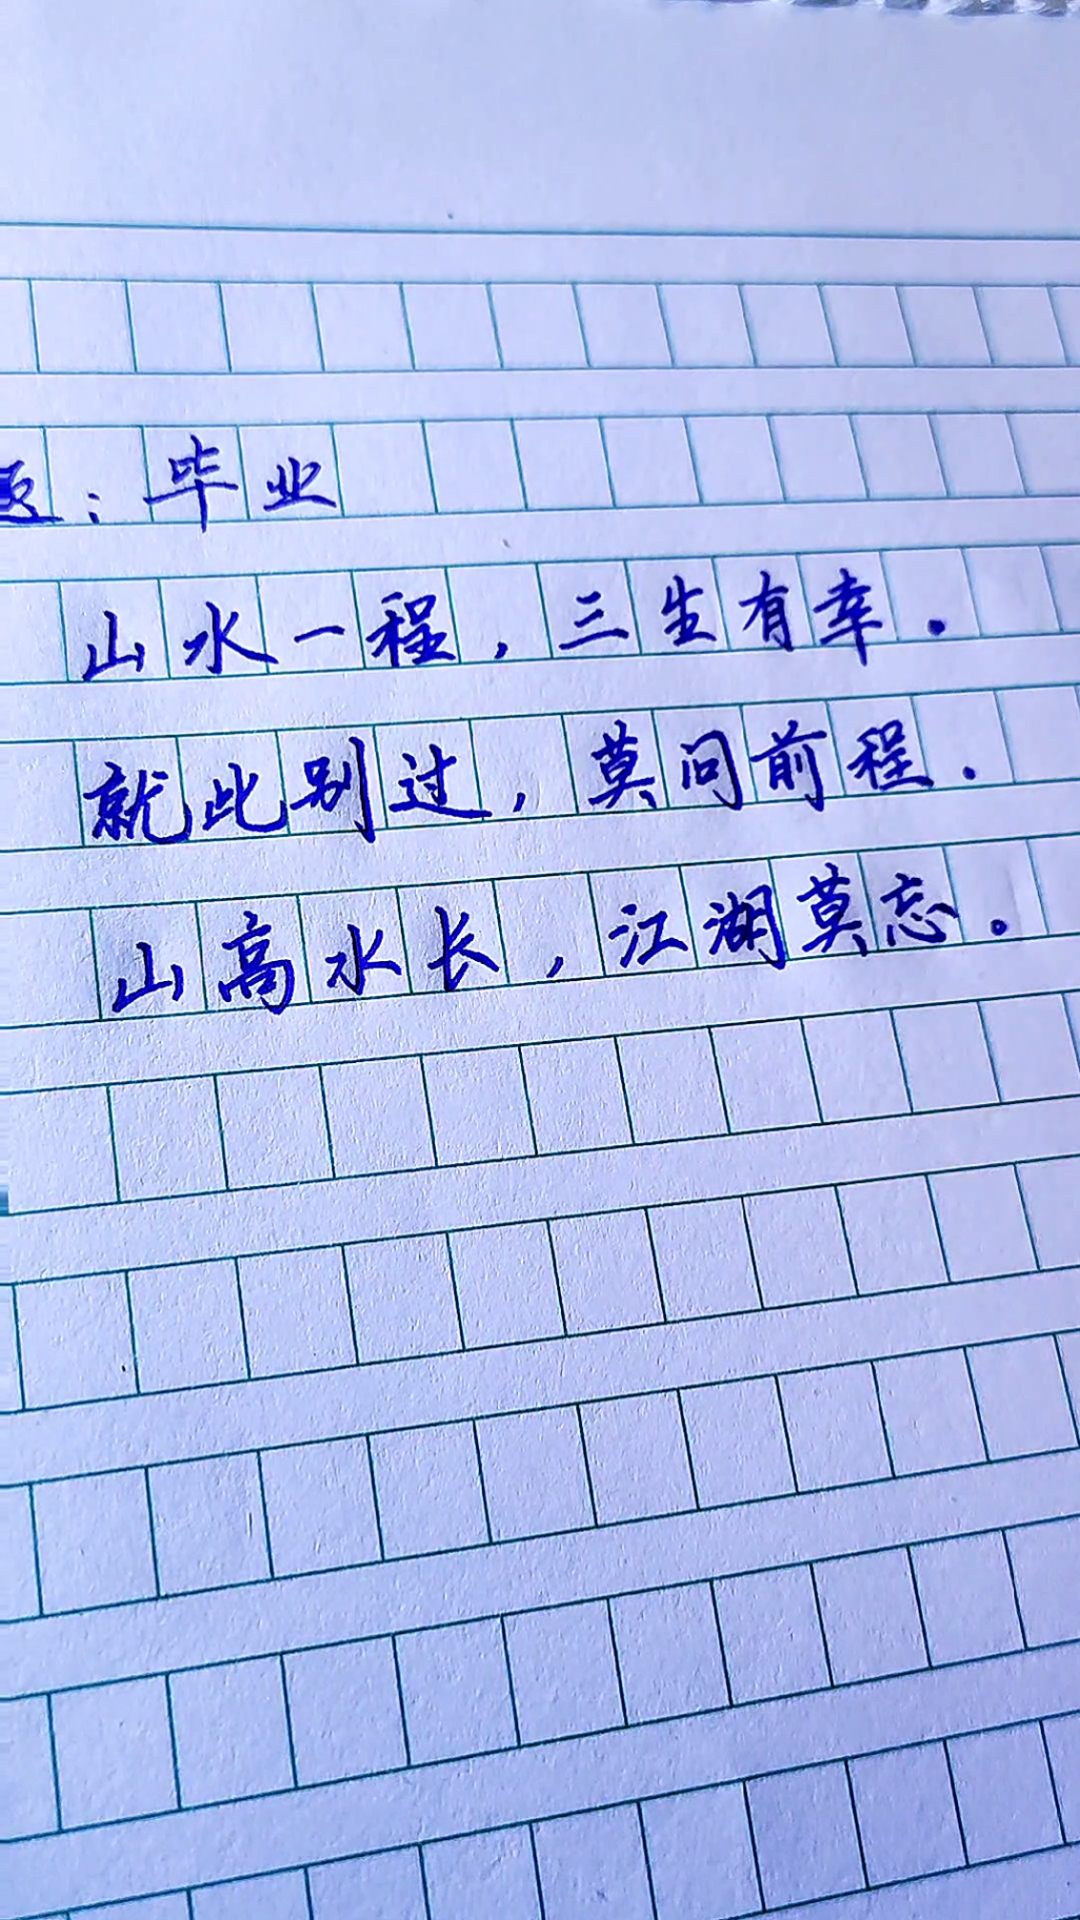 题：毕业
山水一程，三生有幸.
就此别过，莫问前程.
山高水长，江湖莫忘。